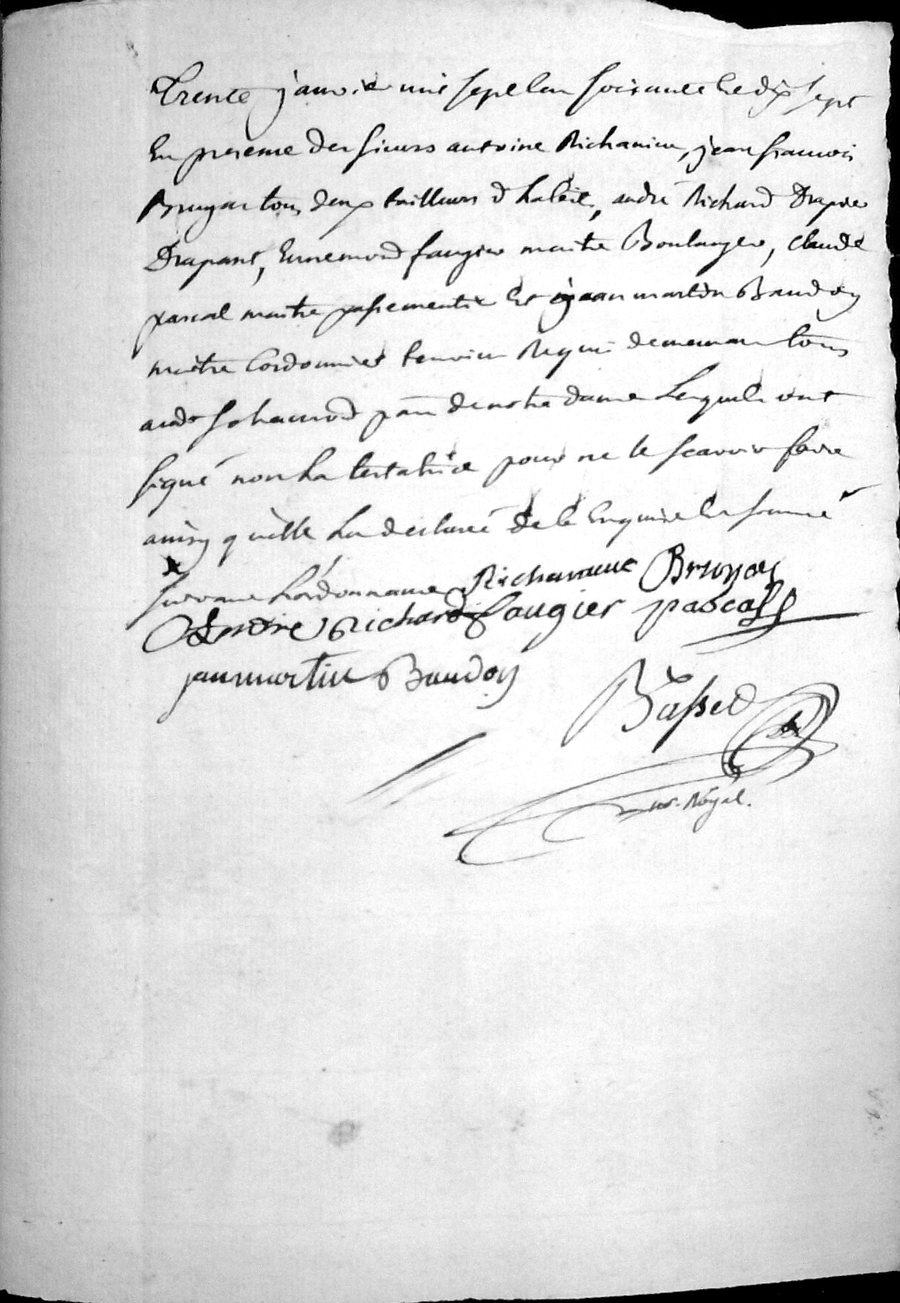 Trente janvier mil sept cen soixante et dix sept
En presence des sieurs antoine Richanieu, jean francois
Bruyas tous deux tailleurs d habits, andré Richard Drapier
Drapant, Ennemond faugier maitre Boulanger, claude
pascal maitre passementier Et jean martin Baudoy
maitre Cordonnier temoins Requis demeurant tous
aud St chamond parr de notre dame Lesquels ont
signé non La testatrice pour ne le scavoir faire
ainsy qu'elle L'a declaré de ce Enquise Et sommé
suivant L'ordonnance Richanieue Bruyas
Andre Richard faugier pascal
jean martin Baudoy
Basset
no.re Royal.